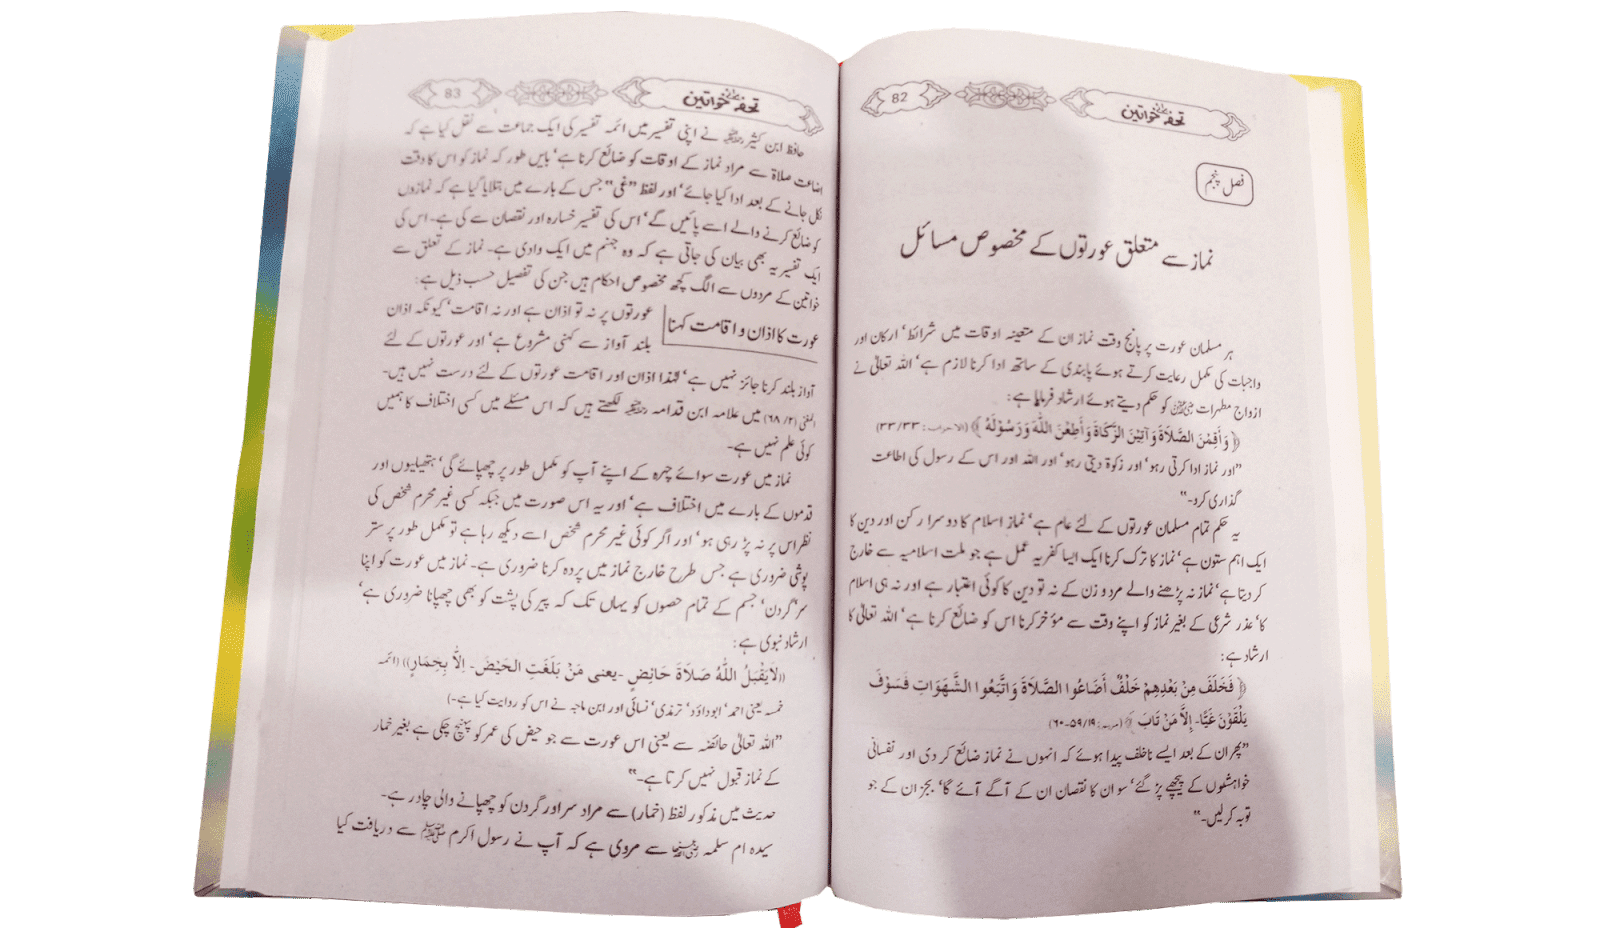 تحفہ خواتین
82
فصل پنجم
نماز سے متعلق عورتوں کے مخصوص مسائل
ہر مسلمان عورت پر پانچ وقت نماز ان کے متعینہ اوقات میں شرائط‘ ارکان اور
واجبات کی مکمل رعایت کرتے ہوئے پابندی کے ساتھ ادا کرنا لازم ہے‘ اللہ تعالیٰ نے
ازواج مطہرات کو حکم دیتے ہوئے ارشاد فرمایا ہے:
﴿ وَأَقِمْنَ الصَّلَاةَ وَآتِينَ الزَّكَاةَ وَأَطِعْنَ اللَّهَ وَرَسُولَهُ ﴾ (الاحزاب: ۳۳/۳۳)
”اور نماز ادا کرتی رہو‘ اور زکوة دیتی رہو‘ اور اللہ اور اس کے رسول کی اطاعت
گذاری کرو۔“
یہ حکم تمام مسلمان عورتوں کے لئے عام ہے‘ نماز اسلام کا دوسرا رکن اور دین کا
ایک اہم ستون ہے‘ نماز کا ترک کرنا ایک ایسا کفریہ عمل ہے جو ملت اسلامیہ سے خارج
کر دیتا ہے‘ نماز نہ پڑھنے والے مرد و زن کے نہ تو دین کا کوئی اعتبار ہے اور نہ ہی اسلام
کا‘ عذر شرعی کے بغیر نماز کو اپنے وقت سے مؤخر کرنا اس کو ضائع کرنا ہے‘ اللہ تعالیٰ کا
ارشاد ہے:
﴿ فَخَلَفَ مِنْ بَعْدِهِمْ خَلْفٌ أَضَاعُوا الصَّلَاةَ وَاتَّبَعُوا الشَّهَوَاتِ فَسَوْفَ
يَلْقَوْنَ غَيًّا۔ إِلَّا مَنْ تَابَ ﴾ (مریم: ۵۹/۱۹-۶۰)
”پھر ان کے بعد ایسے ناخلف پیدا ہوئے کہ انہوں نے نماز ضائع کر دی اور نفسانی
خواہشوں کے پیچھے پڑ گئے‘ سو ان کا نقصان ان کے آگے آئے گا‘ بجز ان کے جو
توبہ کر لیں۔“
تحفہ خواتین
83
حافظ ابن کثیر نے اپنی تفسیر میں ائمہ تفسیر کی ایک جماعت سے نقل کیا ہے کہ
اضاعت صلاۃ سے مراد نماز کے اوقات کو ضائع کرنا ہے‘ بایں طور کہ نماز کو اس کا وقت
نکل جانے کے بعد ادا کیا جائے‘ اور لفظ ”غی“ جس کے بارے میں بتلایا گیا ہے کہ نمازوں
کو ضائع کرنے والے اسے پائیں گے‘ اس کی تفسیر خسارہ اور نقصان سے کی ہے۔ اس کی
ایک تفسیر یہ بھی بیان کی جاتی ہے کہ وہ جہنم میں ایک وادی ہے۔ نماز کے تعلق سے
خواتین کے مردوں سے الگ کچھ مخصوص احکام ہیں جن کی تفصیل حسب ذیل ہے:
عورت کا اذان و اقامت کہنا
عورتوں پر نہ تو اذان ہے اور نہ اقامت‘ کیونکہ اذان
بلند آواز سے کہنی مشروع ہے‘ اور عورتوں کے لئے
آواز بلند کرنا جائز نہیں ہے‘ لہٰذا اذان اور اقامت عورتوں کے لئے درست نہیں ہیں۔
المغنی (۶۸/۲) میں علامہ ابن قدامہ لکھتے ہیں کہ اس مسئلے میں کسی اختلاف کا ہمیں
کوئی علم نہیں ہے۔
نماز میں عورت سوائے چہرہ کے اپنے آپ کو مکمل طور پر چھپائے گی‘ ہتھیلیوں اور
قدموں کے بارے میں اختلاف ہے‘ اور یہ اس صورت میں جبکہ کسی غیر محرم شخص کی
نظر اس پر نہ پڑ رہی ہو‘ اور اگر کوئی غیر محرم شخص اسے دیکھ رہا ہے تو مکمل طور پر ستر
پوشی ضروری ہے جس طرح خارج نماز میں پردہ کرنا ضروری ہے۔ نماز میں عورت کو اپنا
سر‘ گردن‘ جسم کے تمام حصوں کو یہاں تک کہ پیر کی پشت کو بھی چھپانا ضروری ہے‘
ارشاد نبوی ہے:
((لَا يَقْبَلُ اللَّهُ صَلَاةَ حَائِضٍ -يعنى مَنْ بَلَغَتِ الحَيْضَ- إِلَّا بِخِمَارٍ)) (ائمہ
خمسہ یعنی احمد‘ ابوداؤد‘ ترمذی‘ نسائی اور ابن ماجہ نے اس کو روایت کیا ہے۔)
”اللہ تعالیٰ حائضہ سے یعنی اس عورت سے جو حیض کی عمر کو پہنچ چکی ہے بغیر خمار
کے نماز قبول نہیں کرتا ہے۔“
حدیث میں مذکور لفظ (خمار) سے مراد سر اور گردن کو چھپانے والی چادر ہے۔
سیدہ ام سلمہ سے مروی ہے کہ آپ نے رسول اکرم ﷺ سے دریافت کیا